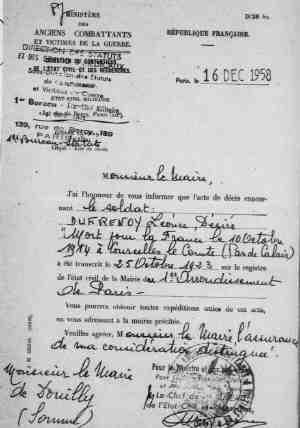 MINISTÈRE
DES
ANCIENS COMBATTANTS
ET VICTIMES DE LA GUERRE.
DIRECTION DES STATUTS
ET DES
DE L'ÉTAT CIVIL ET DES RECHERCHES
Sous-Direction des Statuts
de Combattant
et Victimes de Guerre
1er Bureau
139, rue de Bercy,
PARIS
RÉPUBLIQUE FRANÇAISE.
Paris, le 16 DEC 1958
Monsieur le Maire,
J'ai l'honneur de vous informer que l'acte de décès concer-
nant le soldat:
DUFRENOY Léonce, Désiré
"Mort pour la France" le 10 Octobre
1914 à Courcelles le Comte (Pas de Calais)
a été transcrit le 25 Octobre 1923 sur le registre
de l'état civil de la Mairie du 1er Arrondissement
de Paris.
Vous pourrez obtenir toutes expéditions utiles de cet acte,
en vous adressant à la mairie précitée.
Veuillez agréer, Monsieur le Maire l'assurance
de ma considération distinguée.
Monsieur le Maire
de Douilly
(Somme)
Pour le Ministre et
Le Chef
de l'État-Civil